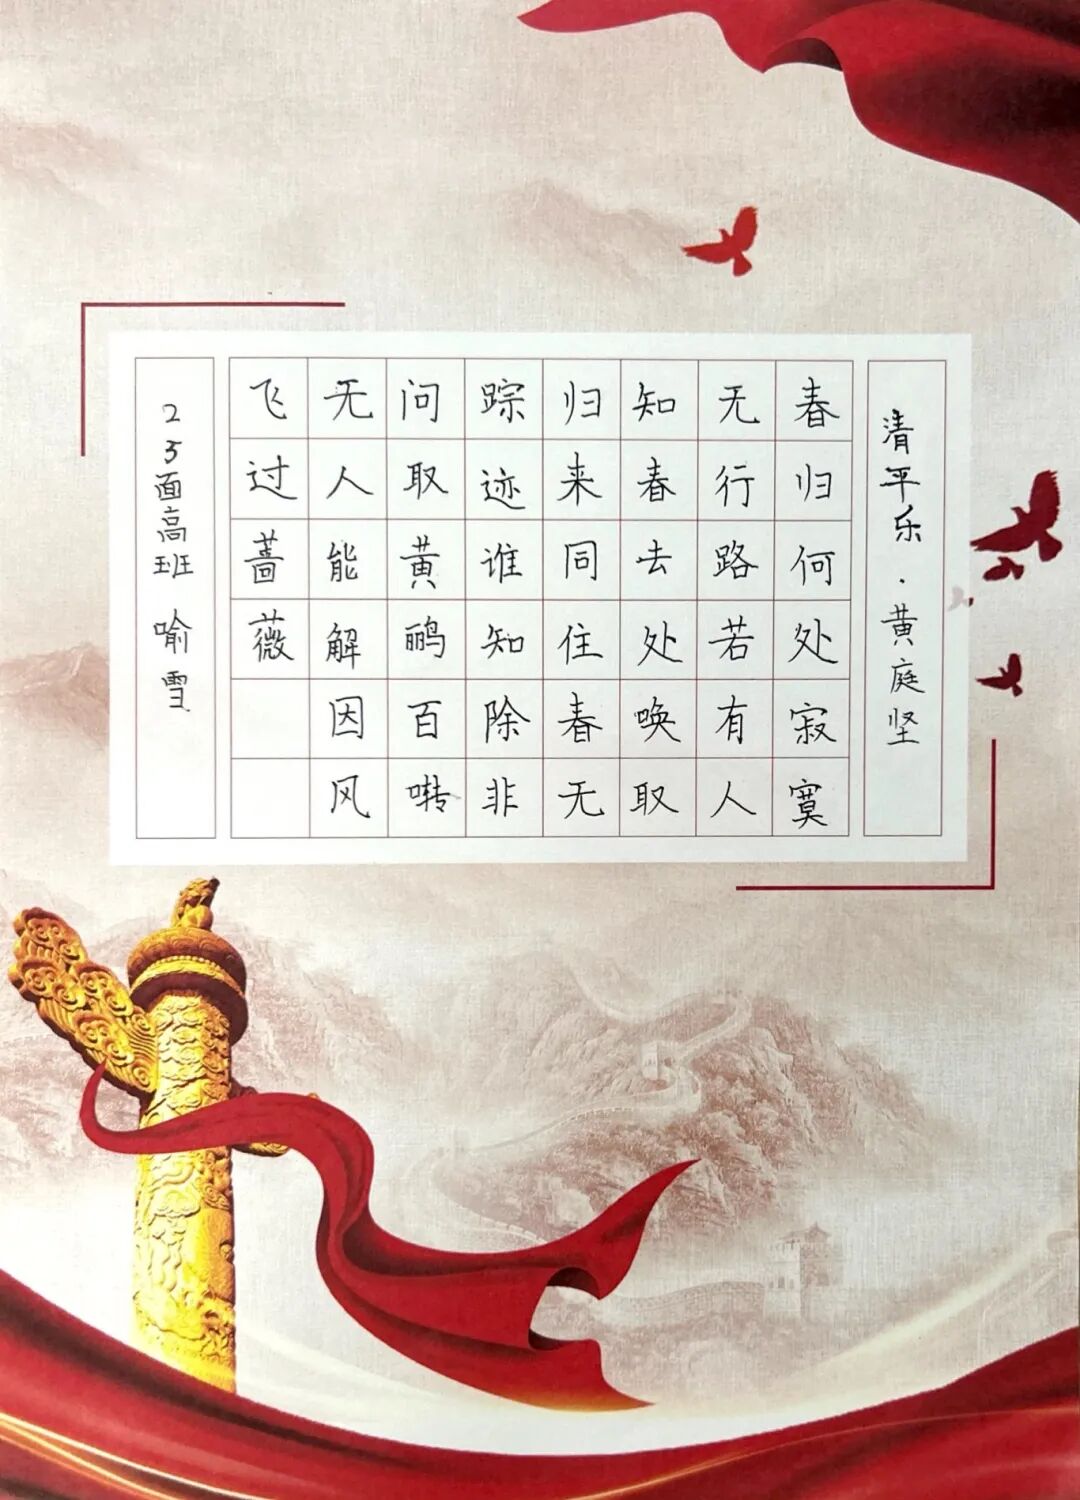 清平乐·黄庭坚
春归何处寂寞
无行路若有人
知春去处唤取
归来同住春无
踪迹谁知除非
问取黄鹂百啭
无人能解因风
飞过蔷薇
23面高班 喻雪